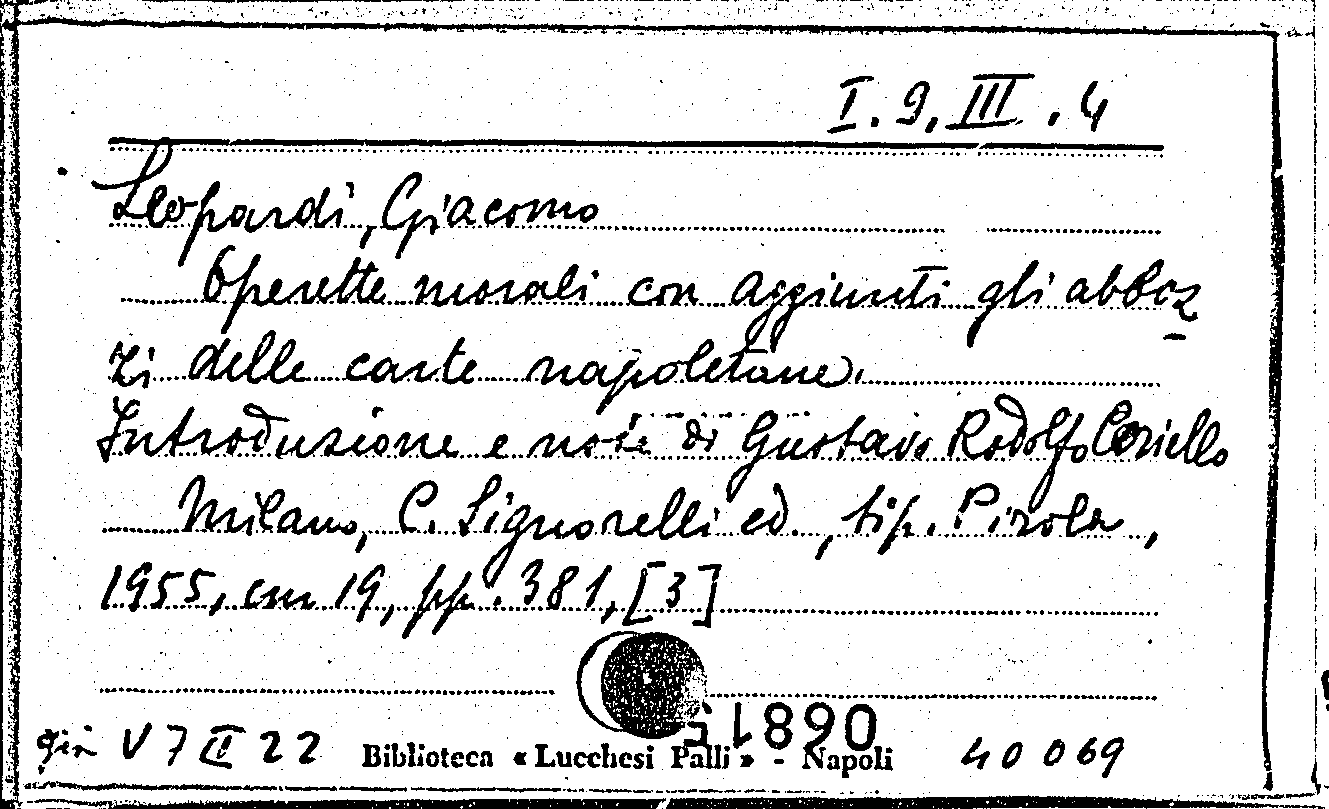 I.9.III.4
Leopardi, Giacomo
Operette morali con aggiunti gli abboz
zi delle carte napoletane.
Introduzione e note di Gustavo Rodolfo Ceriello
Milano, C. Signorelli ed., tip. Pirola,
1955, cm 19, pp. 381, [3]
già V 7 II 22 Biblioteca « Lucchesi Palli » - Napoli 40069